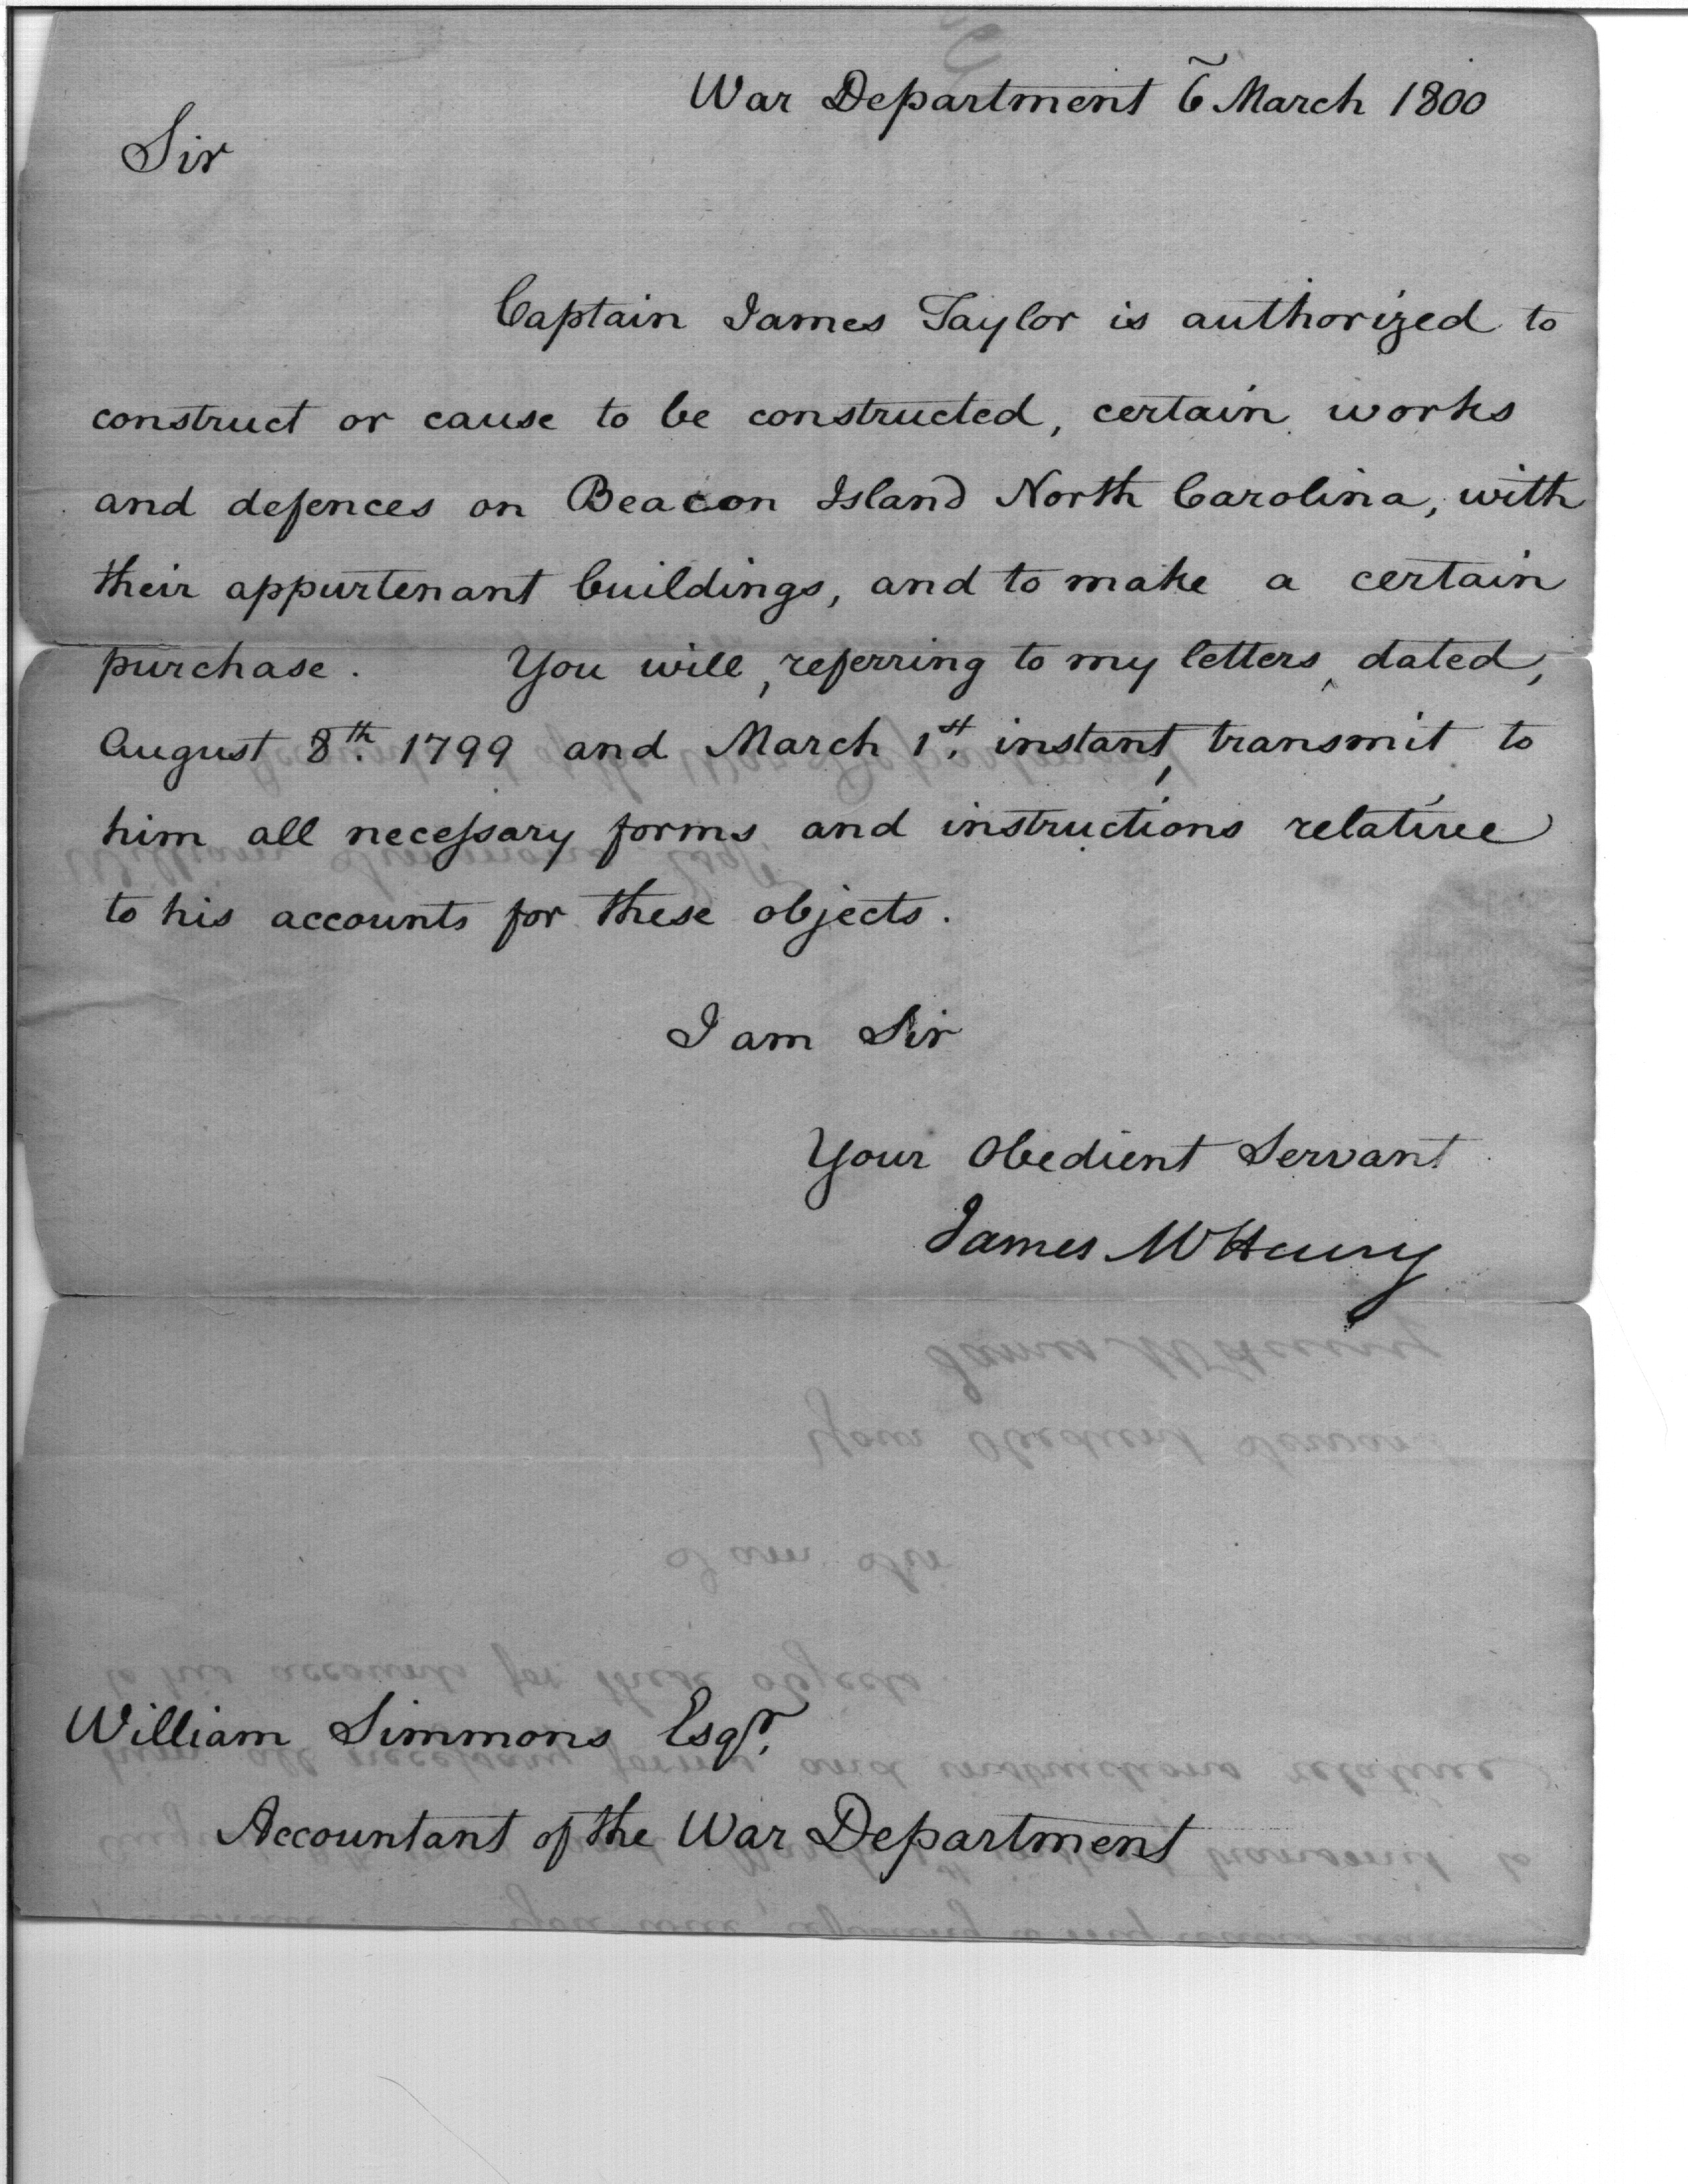 War Department 6 March 1800
Sir
Captain James Taylor is authorized to
construct or cause to be constructed, certain works
and defences on Beacon Island North Carolina, with
their appurtenant buildings, and to make a certain
purchase. You will, referring to my letters, dated,
August 8th. 1799 and March 1st. instant, transmit to
him all necessary forms and instructions relative
to his accounts for these objects.
I am Sir
Your Obedient Servant
James McHenry
William Simmons Esqr.
Accountant of the War Department